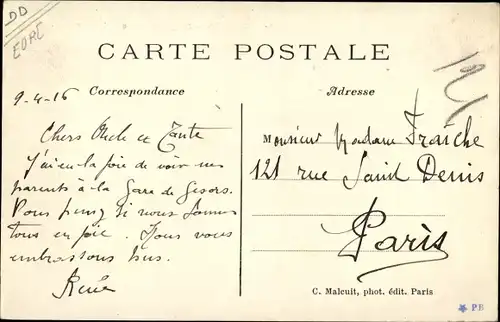 DD
EURE
CARTE POSTALE
9-4-16 Correspondance
Chers Oncle et Tante
J'ai eu la joie de voir mes
parents à la Gare de Gisors.
Vous pensez si nous sommes
tous en joie. Nous vous
embrassons tous.
René
Adresse
Monsieur Madame Fraîche
121 rue Saint Denis
Paris
C. Malcuit, phot. édit. Paris
PB